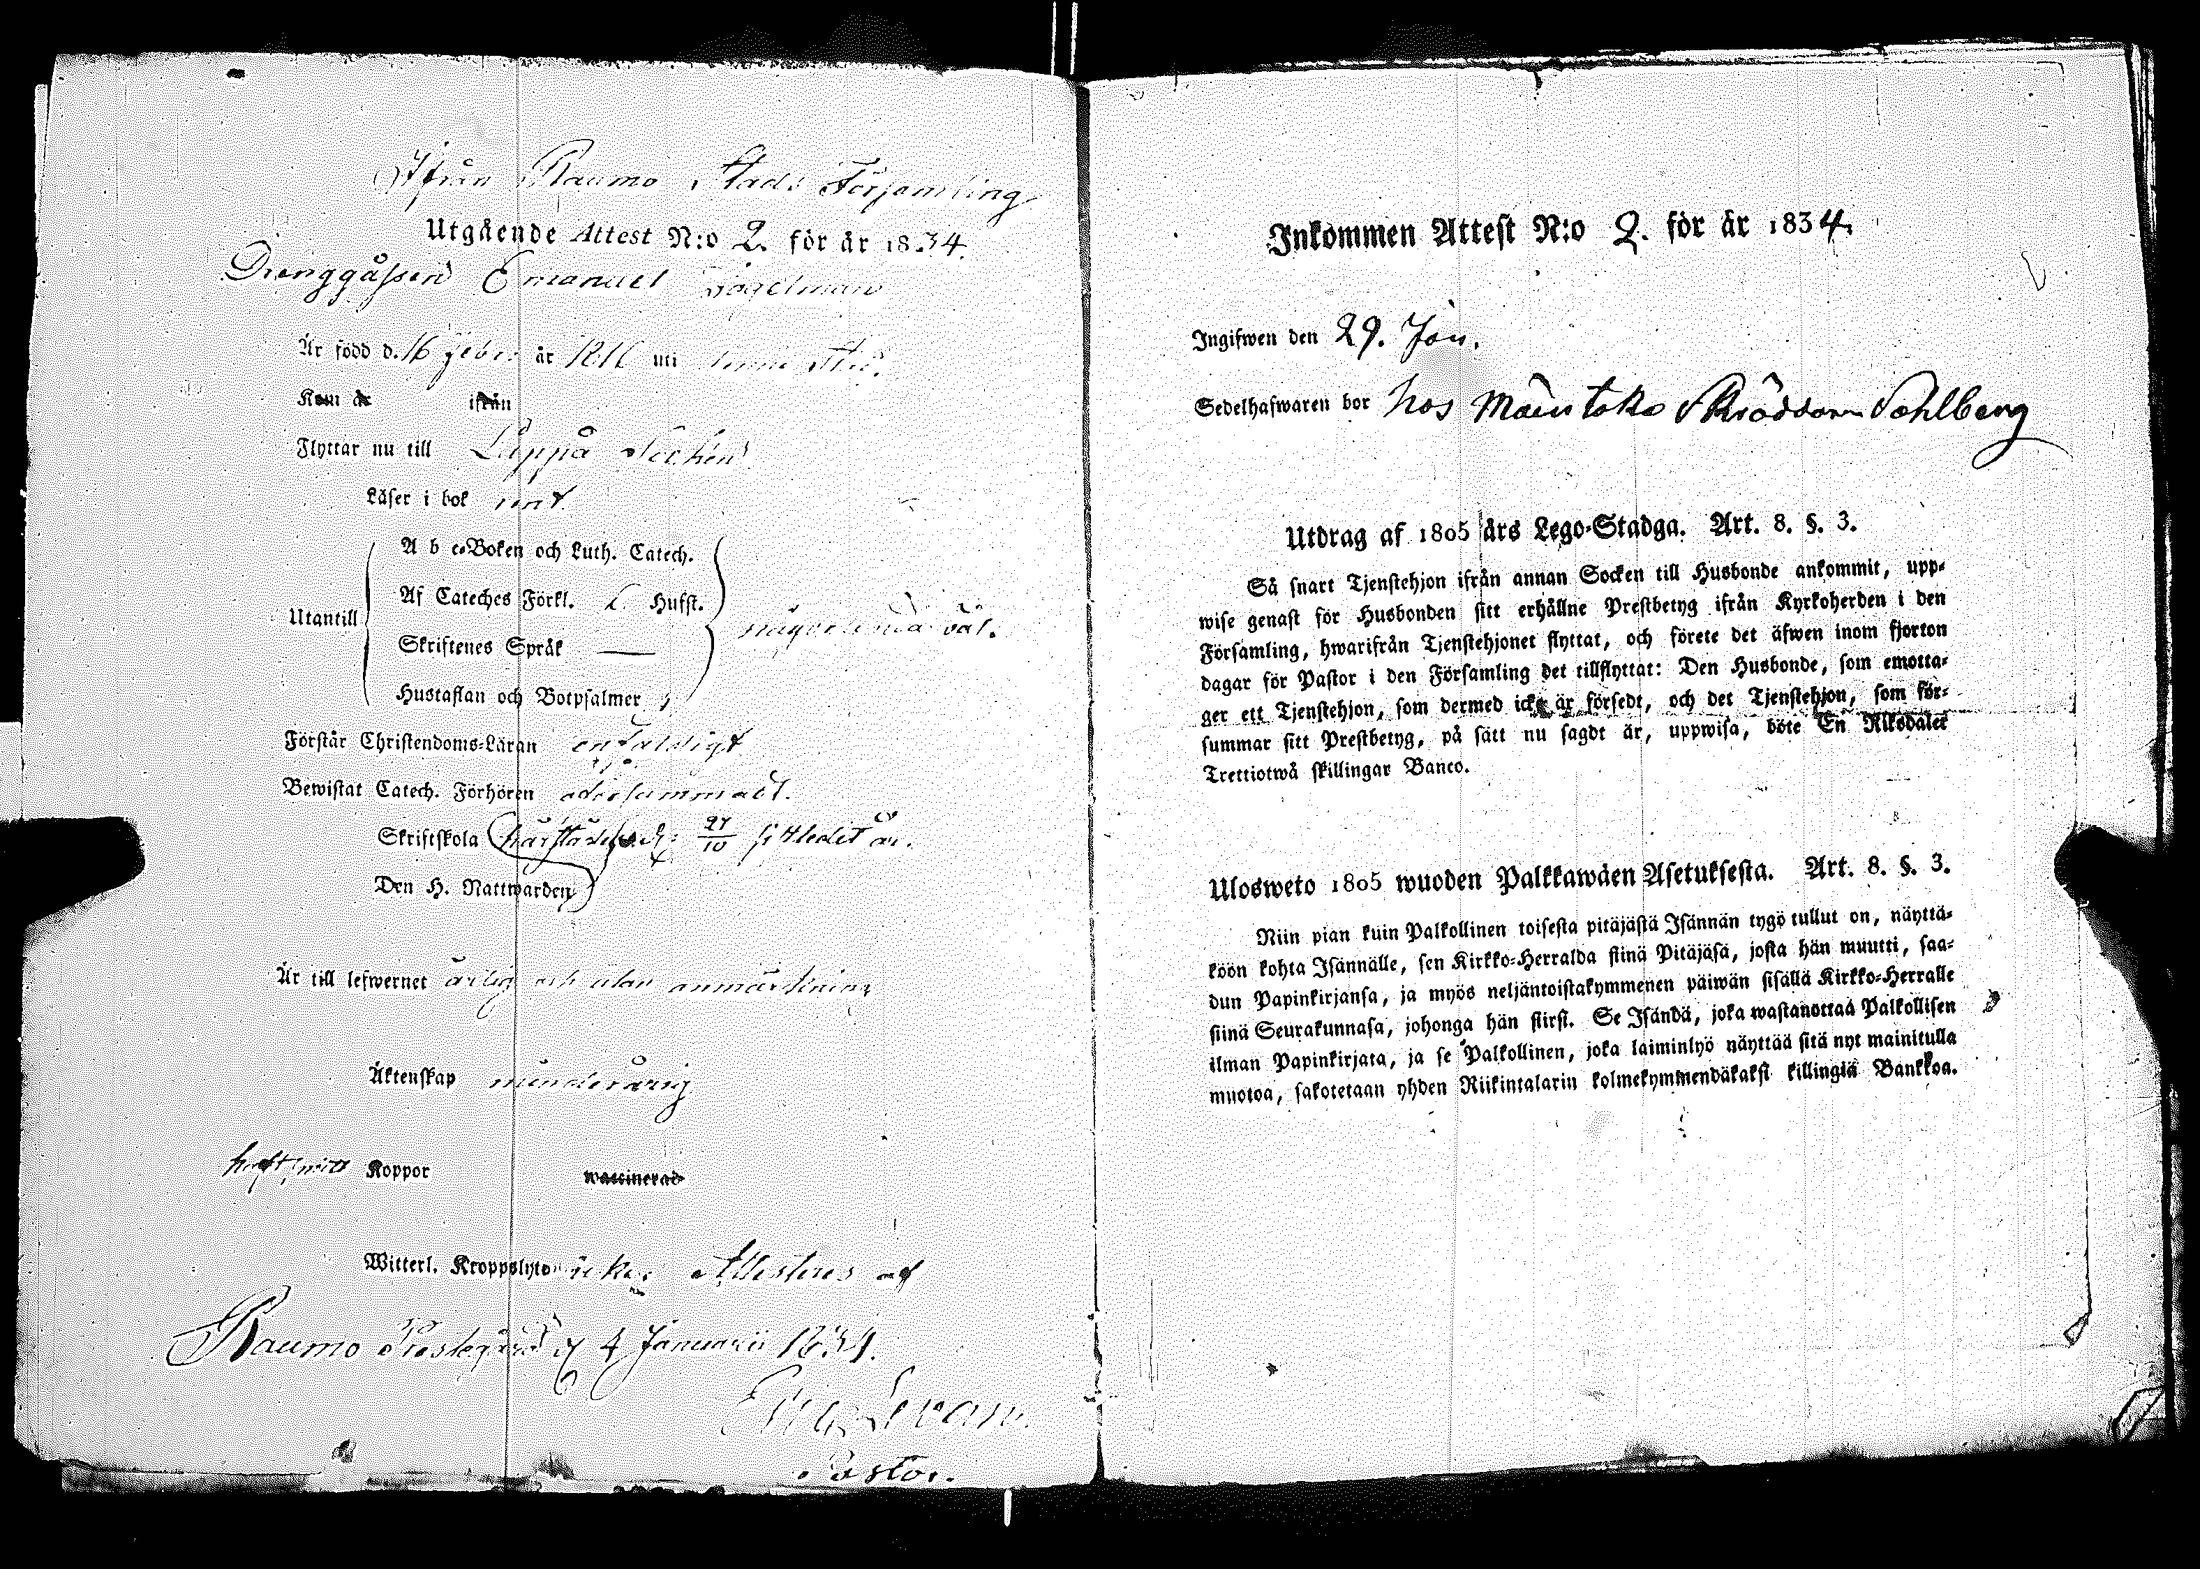 Ifrån Raumo Stads Församling
Utgående Attest N:o 2. för år 1834.
Drenggåssen Emanuel
Är född d. 16 Febr. år 1816 uti
Kom år ifrån
Flyttar nu till Lappå Socken
Läser i bok rent
A b c-Boken och Luth. Catech.
Af Cateches Förkl. Hufst.
Utantill någorlunda väl.
Skriftenes Språk —
Hustaflan och Botpsalmer
Förstår Christendoms-Läran enfaldigt
Bewistat Catech. Förhören
Skriftskola härstädes d. 27/10 sistledet år.
Den H. Nattwarden
Är till lefwernet ärlig och utan anmärkning
Äktenskap minderårig
haft Koppor waccinerad
Witterl. Kroppslyto icke. Attesteras af
Raumo Prestegård d. 4 Januarii 1834.
Pastor.
Inkommen Attest N:o 2. för år 1834.
Ingifwen den 29. Jan.
Sedelhafwaren bor hos Mäntoko Skräddaren Sahlberg
Utdrag af 1805 års Lego-Stadga. Art. 8. §. 3.
Så snart Tjenstehjon ifrån annan Socken till Husbonde ankommit, upp-
wise genast för Husbonden sitt erhållne Prestbetyg ifrån Kyrkoherden i den
Församling, hwarifrån Tjenstehjonet flyttat, och förete det äfwen inom fjorton
dagar för Pastor i den Församling det tillflyttat: Den Husbonde, som emotta-
ger ett Tjenstehjon, som dermed icke är försedt, och det Tjenstehjon, som för-
summar sitt Prestbetyg, på sätt nu sagdt är, uppwisa, böte En Riksdaler
Trettiotwå skillingar Banco.
Ulosweto 1805 wuoden Palkkawäen Asetuksesta. Art. 8. §. 3.
Niin pian kuin Palkollinen toisesta pitäjästä Isännän tygö tullut on, näyttä-
köön kohta Isännälle, sen Kirkko-Herralda siinä Pitäjäsä, josta hän muutti, saa-
dun Papinkirjansa, ja myös neljäntoistakymmenen päiwän sisällä Kirkko-Herralle
siinä Seurakunnasa, johonga hän siirsi. Se Isändä, joka wastanottaa Palkollisen
ilman Papinkirjata, ja se Palkollinen, joka laiminlyö näyttää sitä nyt mainitulla
muotoa, sakotetaan yhden Riikintalarin kolmekymmendäkaksi killingiä Bankkoa.